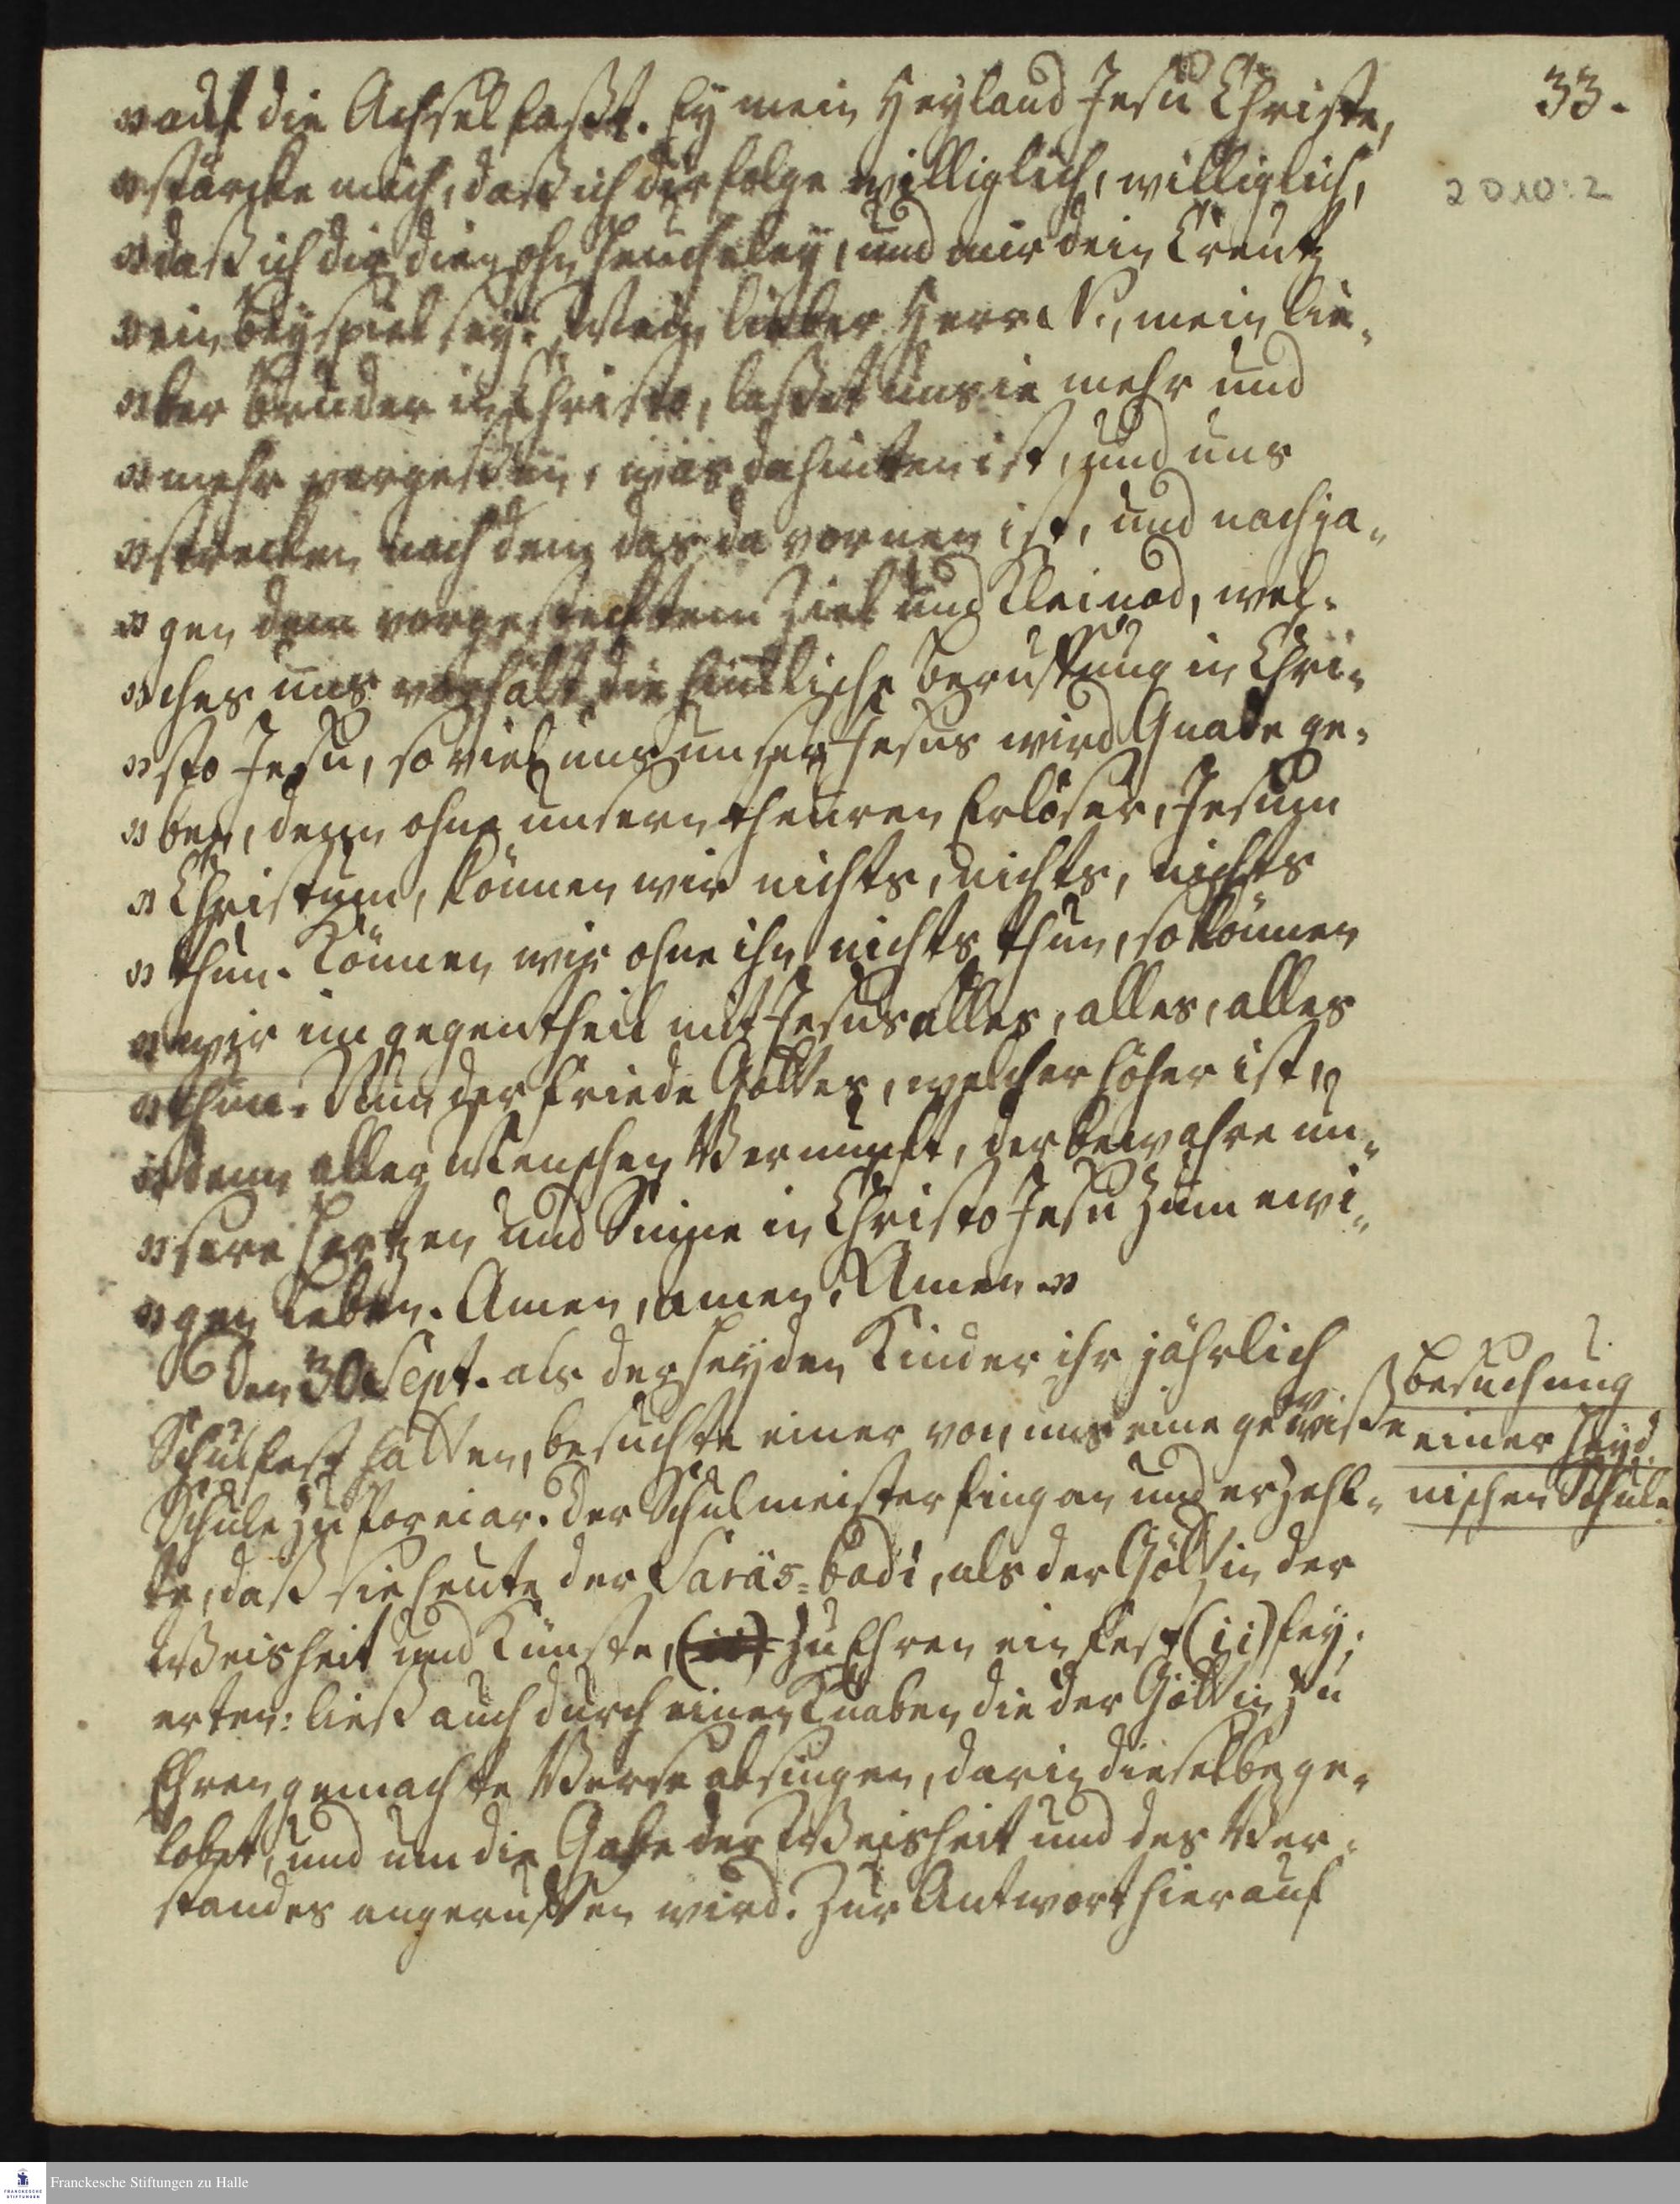 33.
2010:2
„auf die Achsel faßt. Ey mein Heyland Jesu Christe,
„stärcke mich, daß ich dir folge williglich, williglich,
„daß ich dir dien ohn Heucheley, und mir dein Creutz
„ein Beyspiel sey. Mein lieber Herr N., mein lie-
„ber Bruder in Christo, laßet uns ie mehr und
„mehr vergeßen, was dahinten ist, und uns
„strecken nach dem das da vornen ist, und nachja-
„gen dem vorgestecktem Ziel und Kleinod, wel-
„ches uns vorhält die himlische Beruffung in Chri-
„sto Jesu, so viel uns unser Jesus wird Gnade ge-
„ben, denn ohne unsern theuren Erlöser, Jesum
„Christum, können wir nichts, nichts, nichts
„thun. Können wir ohne ihn nichts thun, so können
„wir im gegentheil mit Jesus alles, alles, alles
„thun. Nun der Friede Gottes, welcher höher ist,
„denn aller Menschen Vernunft, der bewahre un-
„sere Hertzen und Sinne in Christo Jesu zum ewi-
„gen Leben. Amen, amen, Amen.„
Den 30 Sept. als der Heyden Kinder ihr jährlich
Schulfest hatten, besuchte einer von uns eine gewiße
Schule zu Poreiar. Der Schulmeister fing an und erzehl-
te, daß sie heute der Saräs-badi, als der Göttin der
Weisheit und Künste, (ii) zu Ehren ein Fest (ii) fey-
erten: ließ auch durch einen Knaben die der Göttin zu
Ehren gemachte Verse absingen, darin dieselbe ge-
lobet, und um die Gabe der Weisheit und des Ver-
standes angeruffen wird. Zur Antwort hierauf
Besuchung
einer Heyd-
nischen Schule.
Franckesche Stiftungen zu Halle
FRANCKESCHE
STIFTUNGEN